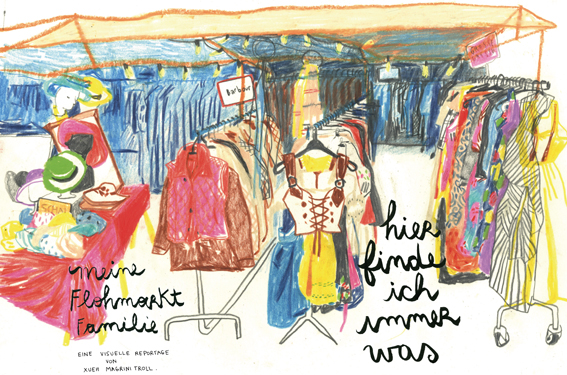 Barbour
SCHALS
meine
Flohmarkt
Familie
EINE VISUELLE REPORTAGE
VON
XUEH MAGRINI TROLL.
hier
finde
ich
immer
was